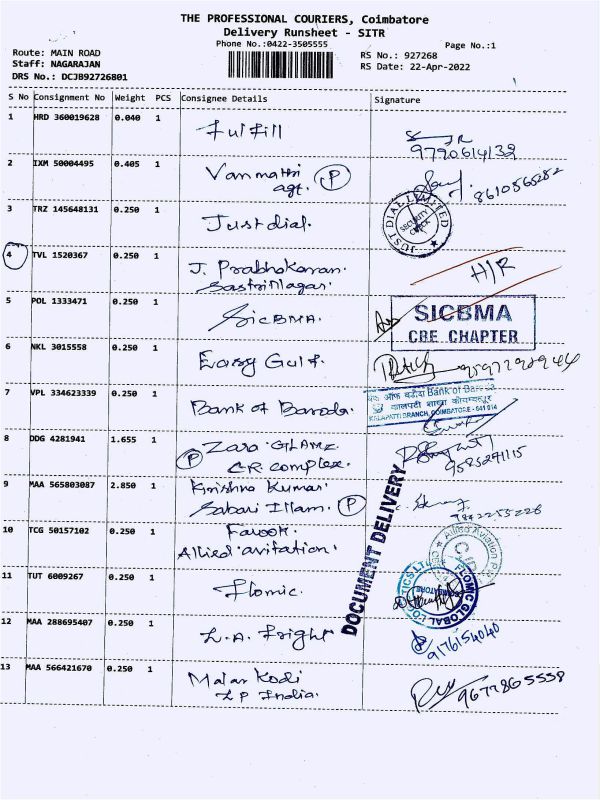 THE PROFESSIONAL COURIERS, Coimbatore
Delivery Runsheet - SITR
Phone No.:0422-3505555
Page No.:1
Route: MAIN ROAD
Staff: NAGARAJAN
DRS No.: DCJB92726801
RS No.: 927268
RS Date: 22-Apr-2022
S No Consignment No Weight PCS Consignee Details Signature
1 HRD 360019628 0.040 1 Fulfill
9790614132
2 IXM 50004495 0.405 1 Vanmathi agt. P
8610565282
3 TRZ 145648131 0.250 1 Justdial.
JUST DIAL LIMITED
SECURITY CHECK
4 TVL 1520367 0.250 1 J. Prabhakaran.
Sastri Nagar.
H/R
5 POL 1333471 0.250 1 SICBMA.
SICBMA
CBE CHAPTER
6 NKL 3015558 0.250 1 Easy Gulf.
7 VPL 334623339 0.250 1 Bank of Baroda.
बैंक ऑफ़ बड़ौदा Bank of Baroda
KALAPATTI BRANCH, COIMBATORE - 641 014
8 DDG 4281941 1.655 1 P Zara GLAMZ
CR complex.
9585271115
9 MAA 565803087 2.850 1 Krishna Kumar.
Sabari Illam. P
DOCUMENT DELIVERY
10 TCG 50157102 0.250 1 Farook.
Allied avitation.
Allied Aviation
11 TUT 6009267 0.250 1 Flomic.
FLOMIC GLOBAL LOGISTICS LTD
12 MAA 288695407 0.250 1 L.A. Fright
9176154040
13 MAA 566421670 0.250 1 Malar Kodi
LP India.
9677865558